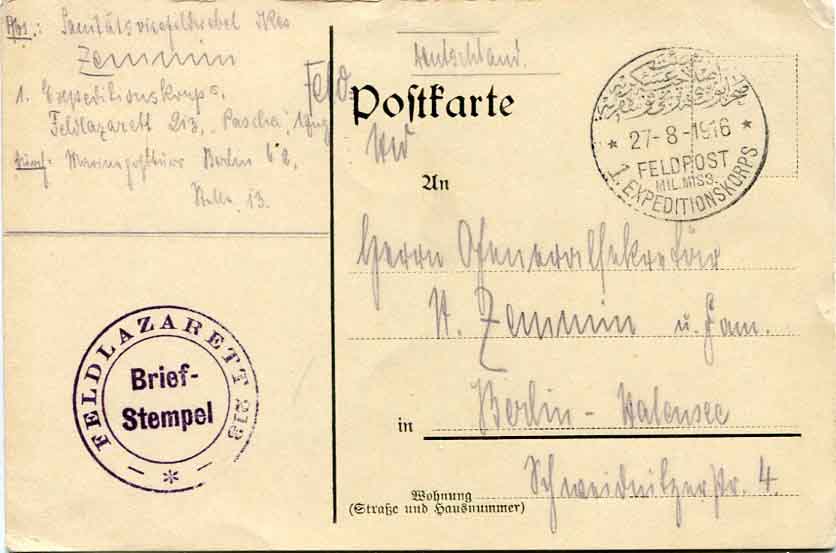 Abs.: Sanitätsvizefeldwebel
Zemmin
1. Expeditionskorps,
Feldlazarett 213, Pascha
durch Marinepostbüro Berlin C 2,
13.
FELDLAZARETT 213
Brief-
Stempel
Deutschland.
Feld
Postkarte
27-8-1916
FELDPOST
MIL.MISS.
1. EXPEDITIONSKORPS
An
Herrn Generalsekretär
A. Zemmin u. Fam.
in Berlin - Halensee
Schweidnitzerstr. 4.
Wohnung
(Straße und Hausnummer)